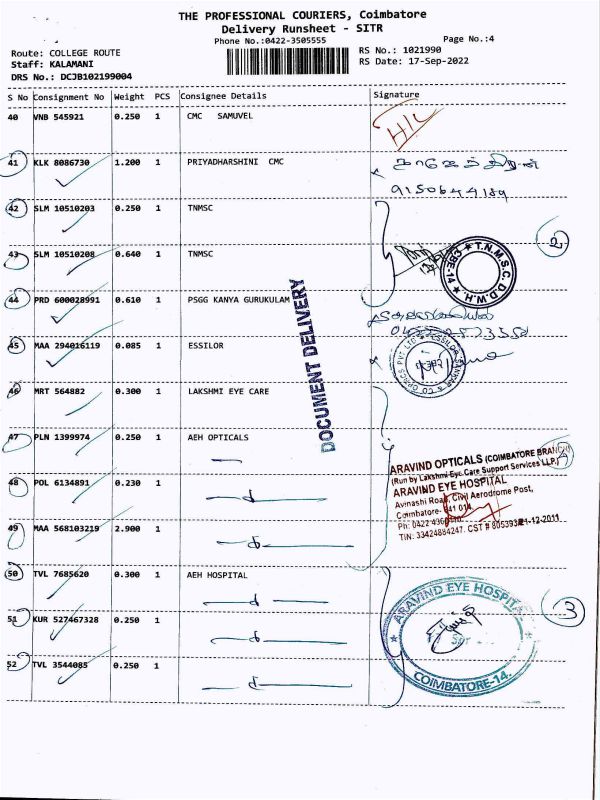 THE PROFESSIONAL COURIERS, Coimbatore
Delivery Runsheet - SITR
Phone No.:0422-3505555 Page No.:4
Route: COLLEGE ROUTE RS No.: 1021990
Staff: KALAMANI RS Date: 17-Sep-2022
DRS No.: DCJB102199004
S No Consignment No Weight PCS Consignee Details Signature
40 VNB 545921 0.250 1 CMC SAMUVEL
41 KLK 8086730 1.200 1 PRIYADHARSHINI CMC
42 SLM 10510203 0.250 1 TNMSC
43 SLM 10510208 0.640 1 TNMSC
2
T.N.M.S.C.D.D.W.H.
44 PRD 600028991 0.610 1 PSGG KANYA GURUKULAM
DOCUMENT DELIVERY
45 MAA 294016119 0.085 1 ESSILOR
46 MRT 564882 0.300 1 LAKSHMI EYE CARE
47 PLN 1399974 0.250 1 AEH OPTICALS
48 POL 6134891 0.230 1
ARAVIND OPTICALS (COIMBATORE BRANCH)
(Run by Lakshmi Eye Care Support Services LLP.)
ARAVIND EYE HOSPITAL
Avinashi Road, Civil Aerodrome Post,
Coimbatore- 641 014.
49 MAA 568103219 2.900 1
50 TVL 7685620 0.300 1 AEH HOSPITAL
51 KUR 527467328 0.250 1
3
ARAVIND EYE HOSPITAL
COIMBATORE-14.
52 TVL 3544085 0.250 1